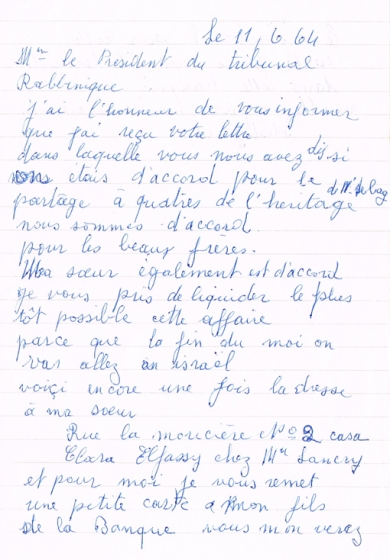 Le 11, 6 64
Mr le President du tribunal
Rabbinique
j'ai l'honneur de vous informer
que j'ai reçu votre lettre
dans laquelle vous nous avez dis si
ons étais d'accord pour le
partage à quatres de l'heritage
nous sommes d'accord
pour les beaux frères.
Ma sœur également est d'accord
je vous pris de liquider le plus
tôt possible cette affaire
parce que la fin du moi on
vas allez an israël
voiçi encore une fois ladresse
à ma soeur
Rue la moricière No 2 casa
Clara Elfassy chez Mr Lancry
et pour moi je vous remet
une petite carte a mon fils
de la Banque vous mon verez